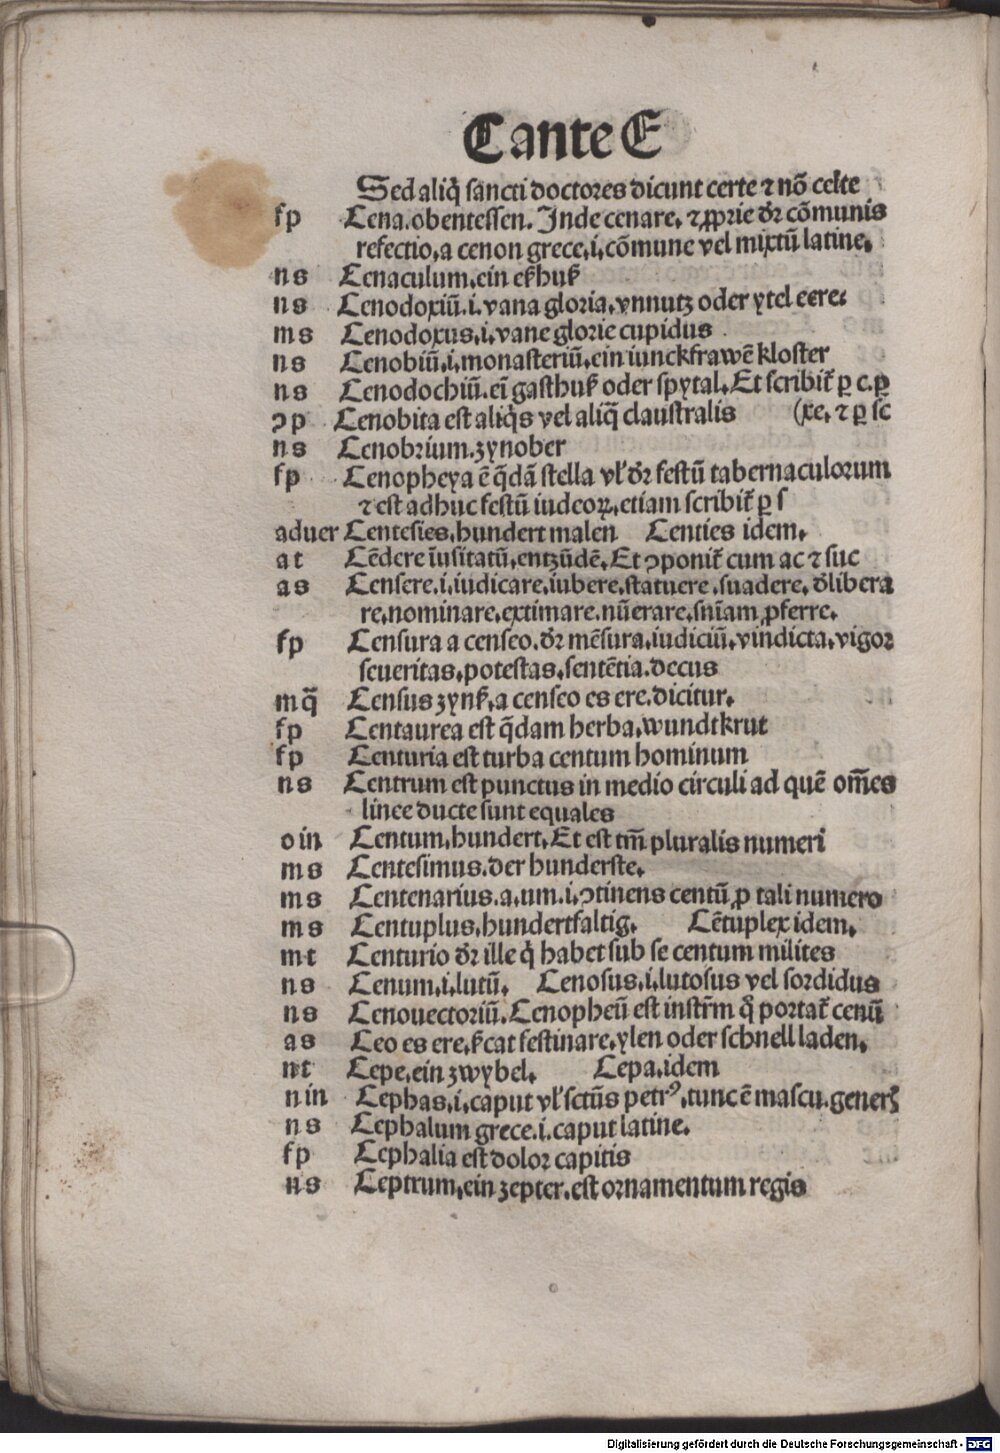 C ante E
Sed aliq̄ sancti doctores dicunt certe ⁊ nō celte
fp Cena. obentessen. Inde cenare, ⁊ ꝓprie dr̄ cōmunis
refectio, a cenon grece, i, cōmune vel mixtū latine,
ns Cenaculum, ein eßhuß
ns Cenodoxiū. i. vana gloria, vnnutz oder ytel eere.
ms Cenodoxus, i, vane glorie cupidus
ns Cenobiū, i, monasteriū, ein iunckfrawē kloster
ns Cenodochiū. ei᷑ gasthuß oder spytal, Et scribit᷑ ꝑ c. ꝑ
ɔp Cenobita est aliq̄s vel aliq̄ claustralis (xe, ⁊ ꝑ sc
ns Cenobrium. zynober
fp Cenopheya ē q̄dā stella vl' dr̄ festū tabernaculorum
⁊ est adhuc festū iudeoꝝ, etiam scribit᷑ ꝑ s
aduer Centesies, hundert malen Centies idem,
at Cēdere īusitatū, entzūdē, Et ɔponit᷑ cum ac ⁊ suc
as Censere. i, iudicare, iubere, statuere, suadere, dlibera
re, nominare, extimare. nūerare, snīam ꝓferre.
fp Censura a censeo. dr̄ mēsura, iudiciū, vindicta, vigor
seueritas, potestas, sentētia. decus
mq̄ Census zynß, a censeo es ere. dicitur,
fp Centaurea est q̄dam herba, wundtkrut
fp Centuria est turba centum hominum
ns Centrum est punctus in medio circuli ad quē om̄es
linee ducte sunt equales
oin Centum, hundert, Et est tm̄ pluralis numeri
ms Centesimus. der hunderste,
ms Centenarius. a, um. i, ɔtinens centū, ꝓ tali numero
ms Centuplus, hundertfaltig, Cētuplex idem,
mt Centurio dr̄ ille q̄ habet sub se centum milites
ns Cenum, i, lutū, Cenosus, i, lutosus vel sordidus
ns Cenouectoriū. Cenopheū est instrm̄ qͦ portat᷑ cenū
as Ceo es ere, ẞcat festinare, ylen oder schnell laden,
nt Cepe, ein zwybel, Cepa, idem
nin Cephas, i, caput vl' sctūs petrꝰ, tunc ē mascu. generꝭ
ns Cephalum grece. i. caput latine.
fp Cephalia est dolor capitis
ns Ceptrum, ein zepter. est ornamentum regis
Digitalisierung gefördert durch die Deutsche Forschungsgemeinschaft - DFG